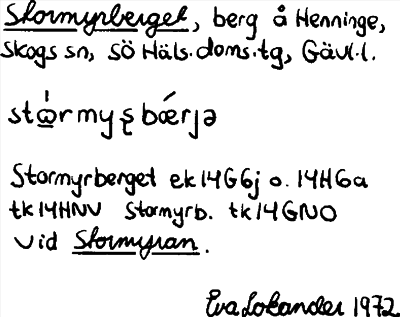 Stormyrberget, berg å Henninge,
Skogs sn, SÖ Häls.doms.tg, Gävl.l.
stώ̲rmyȿbǿrjə
Stormyrberget ek14G6j o. 14H6a
tk14HNV Stormyrb. tk14GNO
vid Stormyran.
Eva Lokander 1972